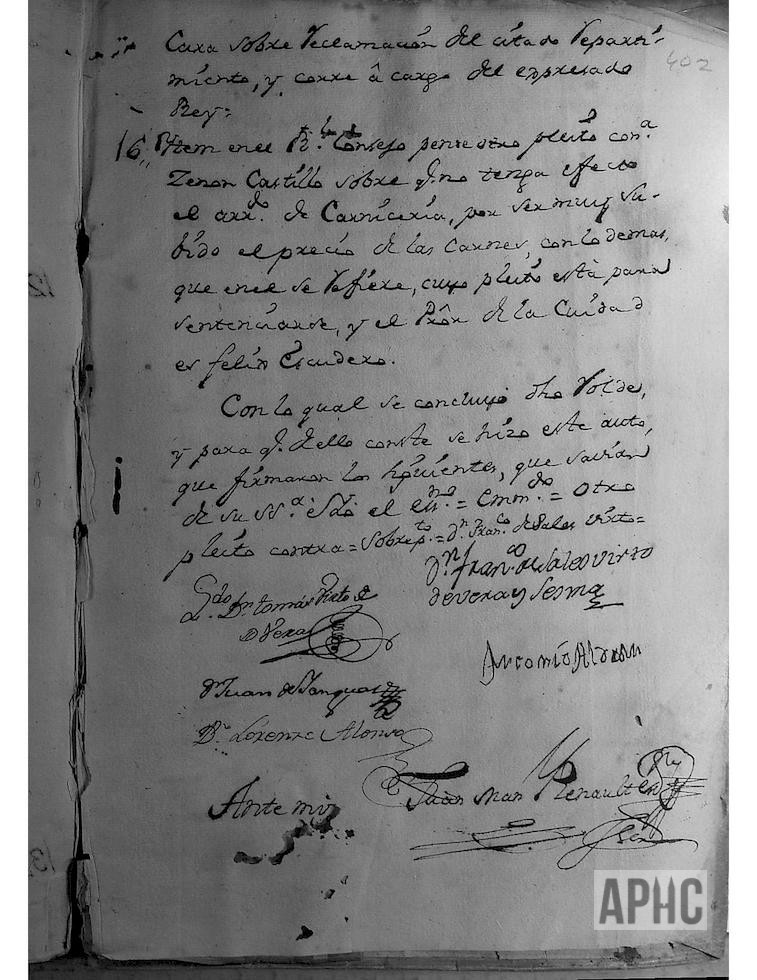 402
Casa sobre reclamación del citado repartì-
miento, y corre â cargo del expresado
Rey=
16,, Ytem en el Rl. Consejo pende otro pleito con.a
Zenon Castillo sobre q.e no tenga efecto
el arr.do de Carniceria, por ser muy su-
bido el precio de las Carnes, con lo demas,
que en el se refiere, cuyo pleito està para
sentenciarse, y el Prõr de la Ciudad
es felix Escudero.
Con lo qual se concluyó dho Rolde,
y para q.e de ello conste se hizo este auto,
que firmaron los siguientes, que savian
de su SS.a Sdõ el = Emm.do = Otro
pleito contra = Sobre p.to = D.n Fran.co de Sales Virto=
D.n Fran.co de Sales Virto
de Vera y Sesma
L.do D.n tomás Virto de
Vera
Antonio
D.n Juan de Yanguas
D.n Lorenzo Alonso
Juan Man Renault
Ante mi
APHC